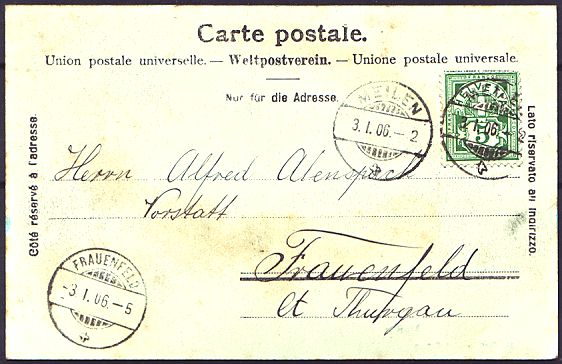 Carte postale.
Union postale universelle. — Weltpostverein. — Unione postale universale.
Nur für die Adresse.
Côté réservé à l'adresse.
Lato riservato all'indirizzo.
MEILEN
3.I.06.–2
HELVETIA
3.I.06.–2
5
Herrn Alfred Abenspach
Vorstatt
Frauenfeld
Ct Thurgau
FRAUENFELD
–3.I.06.–5